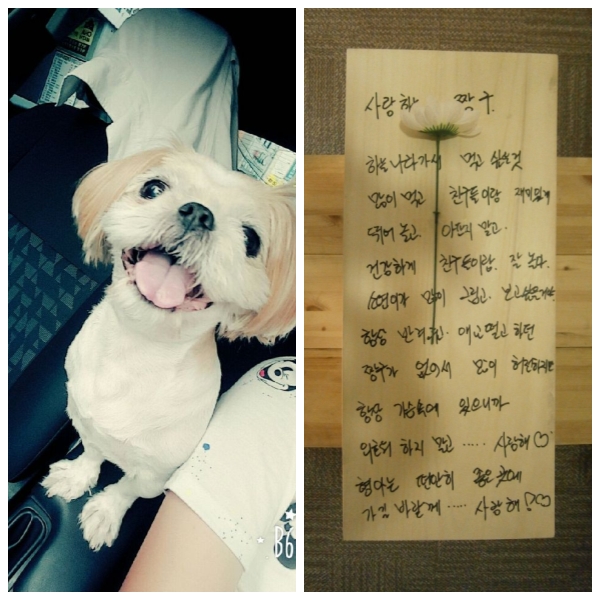 사랑하는 짱구.
하늘나라가서 먹고 싶은것
많이 먹고 친구들이랑 재미있게
뛰어 놀고. 아프지 말고.
건강하게 친구들이랑. 잘 놀다.
많이 그립고. 보고싶을거야
항상 반겨주고. 애교떨고 하던
짱구가 없어서 맘이 허전하지만
항상 가슴속에 있으니까
외로워 하지 말고 ····· 사랑해♡
형아는 편안히 좋은곳에
가길 바랄께 ···· 사랑해!♡
B6